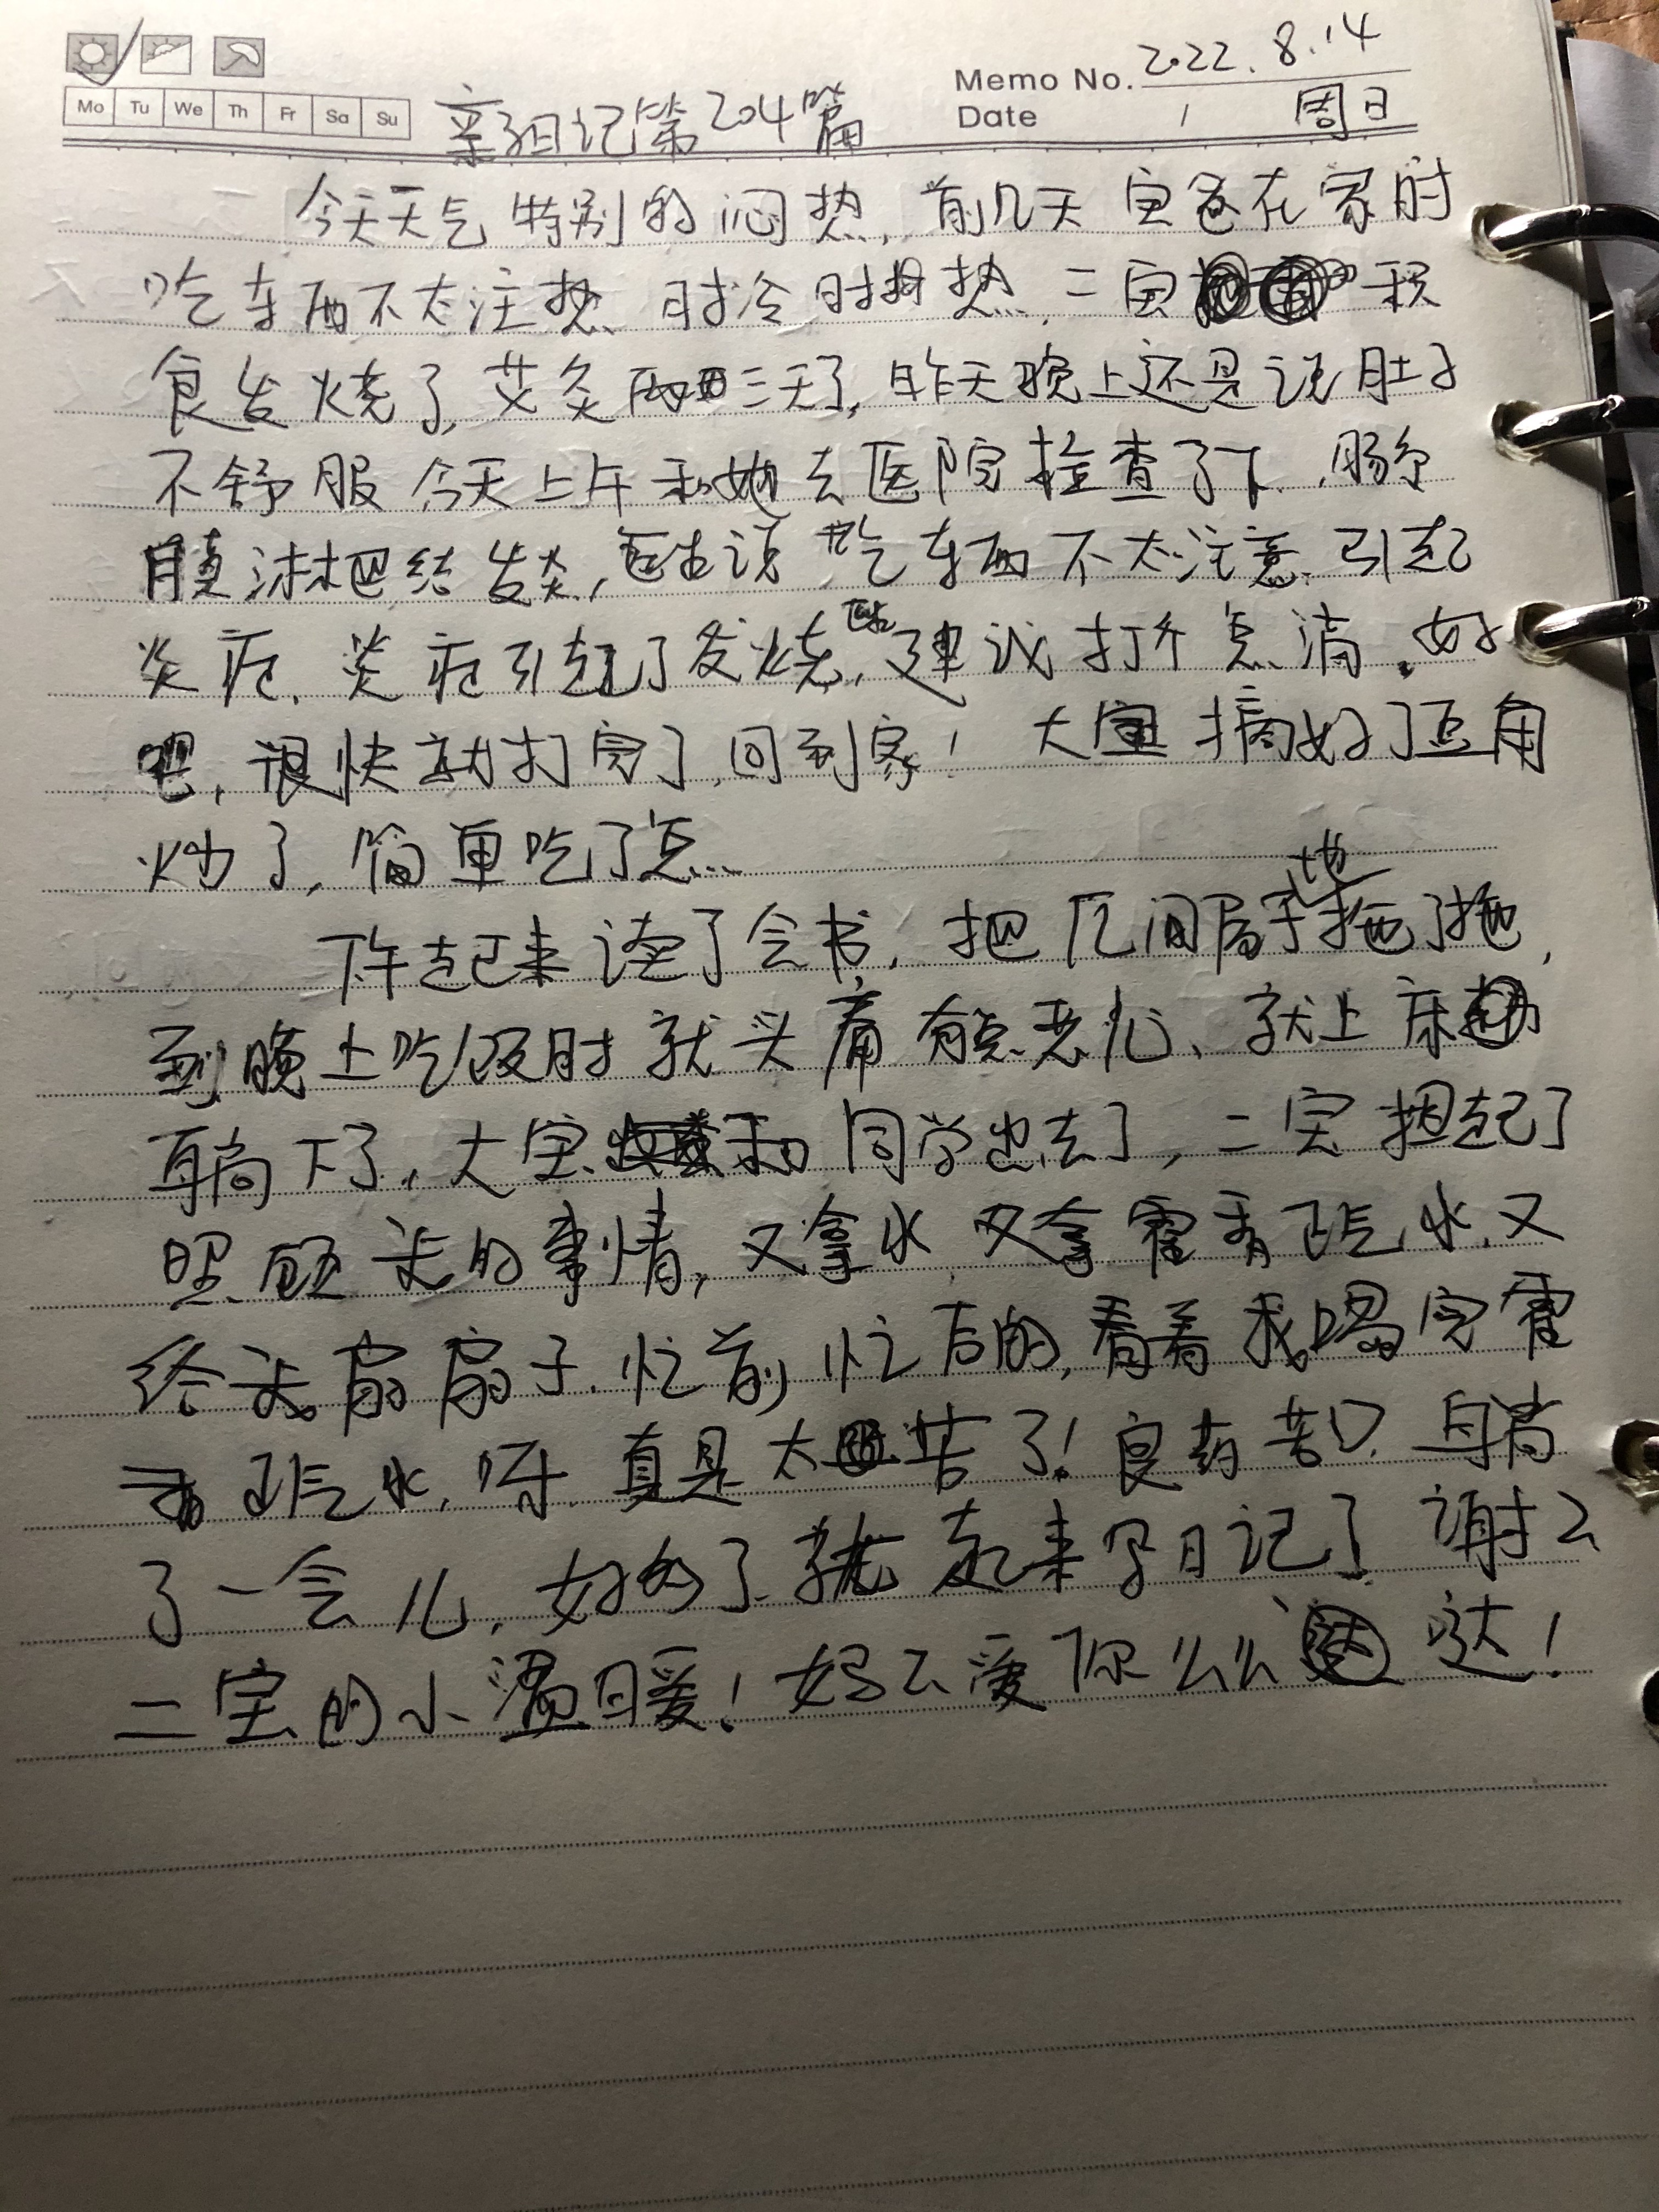 Memo No. 2022.8.14
Mo Tu We Th Fr Sa Su
Date / 周日
亲子日记第204篇
今天天气特别的闷热,前几天宝爸在家时
吃东西不太注意 时冷时热,二宝积
食发烧了,艾灸两三天了,昨天晚上还是说肚子
不舒服 今天上午和她去医院检查了下,肠系
膜淋巴结发炎,医生说吃东西不太注意引起
炎症,炎症引起了发烧,医生建议打个点滴.好
吧,很快就打完了,回到家!大宝摘好了豆角
炒了,简单吃了点.
下午起来读了会书,把几间房子地拖了拖,
到晚上吃饭时就头痛有点恶心、就上床
躺下了,大宝和同学出去了,二宝担起了
照顾我的事情,又拿水又拿藿香正气水,又
给我扇扇子.忙前忙后的,看着我喝完藿
香正气水,呀 真是太苦了!良药苦口.躺
了一会儿,好多了.就起来写日记了 谢谢
二宝的小温暖!妈妈爱你么么哒!